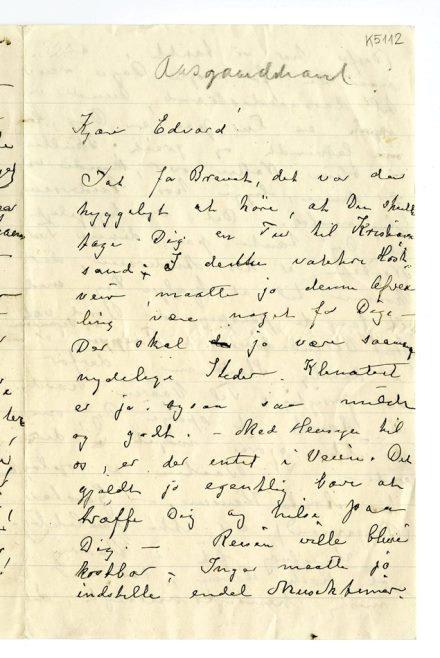 K5112
Aasgaardstrand
Kjære Edvard!
Tak for Brevet, det var da
hyggeligt at höre, at Du skulde
tage Dig en Tur til Kristian
sand; I dette vakkre Höst
veir, maatte jo denne Afvex
ling være noget for Dig. –
Der skal jo være saamange
nydelige Steder. Klimatet
er jo ogsaa saa mildt
og godt. – Med Hensyn til
os, er der intet i Veien. Det
gjaldt jo egentlig bare at
träffe Dig og hilse paa
Dig. – Reisen ville blive
kostbar – Inger maatte jo
indstille endel Musiktimer.